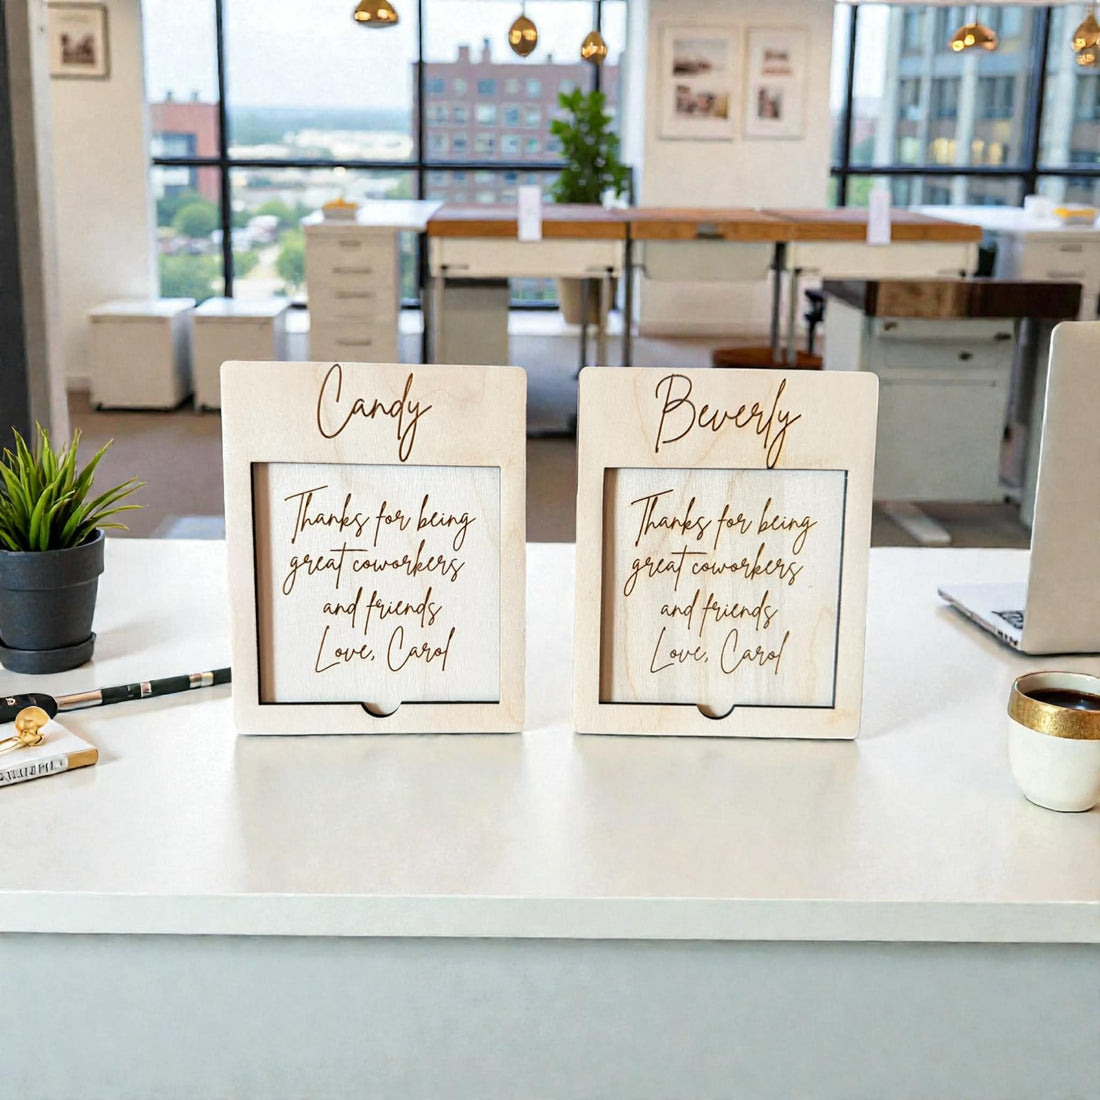 Candy
Thanks for being
great coworkers
and friends
Love, Carol
Beverly
Thanks for being
great coworkers
and friends
Love, Carol